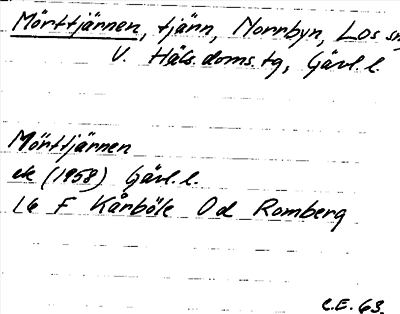 Mörttjärnen, tjärn, Norrbyn, Los sn
V. Häls. doms. tg, Gävl. l.
Mörttjärnen
ek (1958) Gävl. l.
16 F Kårböle Od Romberg
C.E. 63.